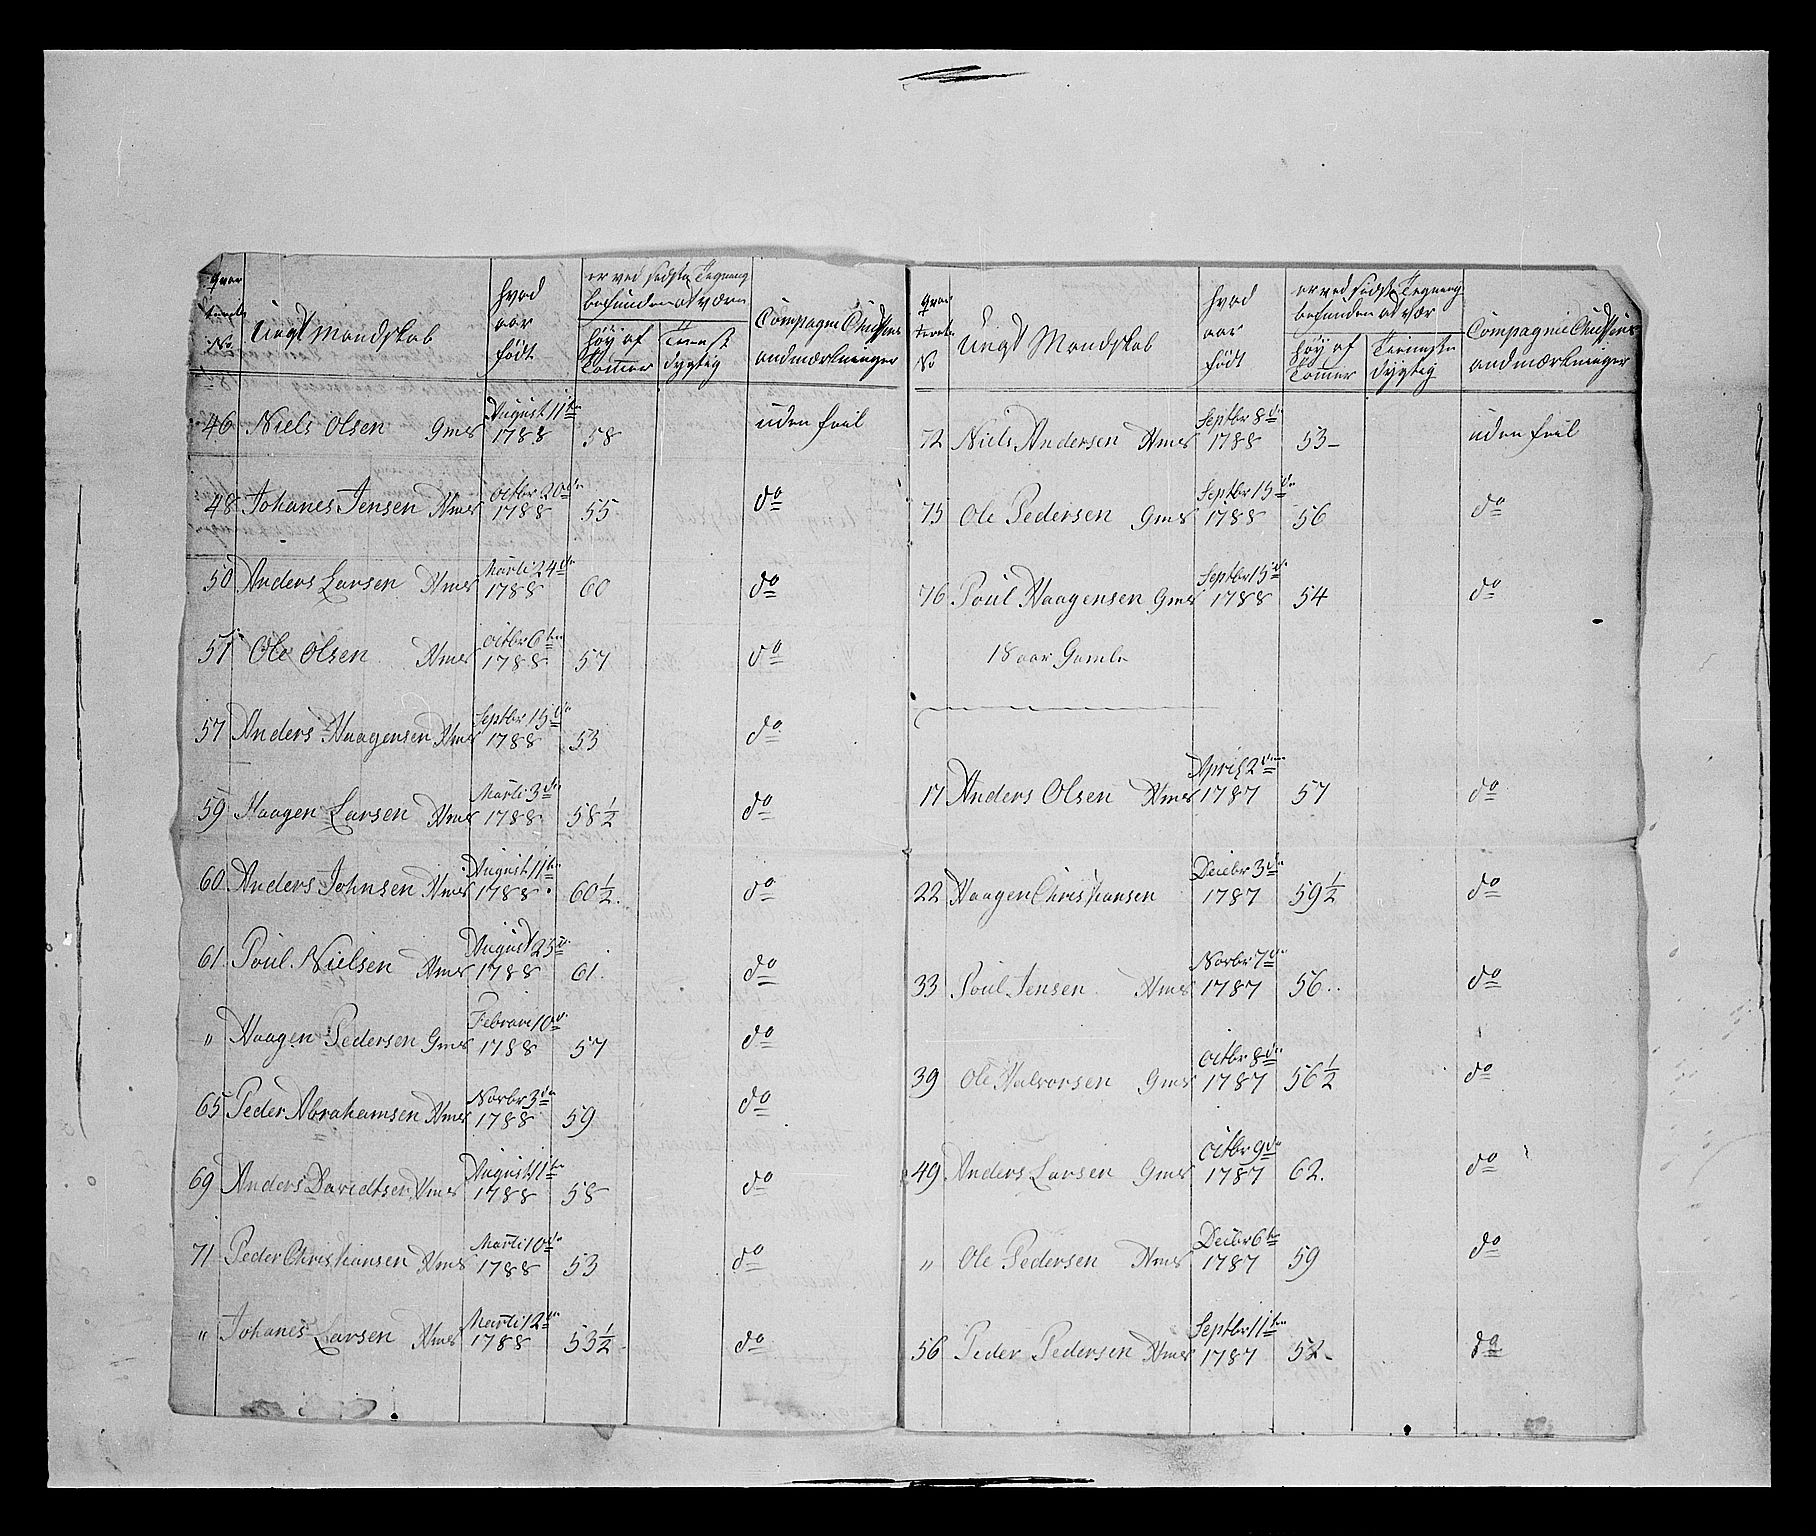 Qvar
terets
No
Ungt Mandskab
hvad
aar
født
er ved sidste Tegning
befunden at være
høy af
Tomer
Tienst
dygtig
Compagnie Chefens
andmærkninger
46 Niels Olsen Gmes August 11te 1788 58 uden feil
48 Johanes Jensen Hmes Octbr 20de 1788 55 do
50 Anders Larsen Hmes Marti 24de 1788 60 do
51 Ole Olsen Hmes Octbr 6te 1788 57 do
57 Anders Haagensen Hmes Septbr 15de 1788 53 do
59 Haagen Larsen Hmes Marti 3de 1788 58½ do
60 Anders Johnsen Hmes August 11te 1788 60½ do
61 Poul Nielsen Hmes August 23d. 1788 61 do
" Haagen Pedersen Gmes Febrari 10d. 1788 57 do
65 Peder Abrahamsen Hmes Novbr 3de 1788 59 do
69 Anders Davidtsen Hmes August 11te 1788 58 do
71 Peder Christiansen Hmes Marti 10de 1788 53 do
" Johanes Larsen Hmes Marti 12te 1788 53½ do
Qvar
terets
No
Ungt Mandskab
hvad
aar
født
er ved sidste Tegning
befunden at vær
høy af
Tomer
Tienste
dygtig
Compagnie Chefens
andmærkninger
72 Niels Andersen Hmes Septbr 8de 1788 53 uden feil
75 Ole Pedersen Gmes Septbr 15de 1788 56 do
76 Poul Haagensen Gmes Septbr 15de 1788 54 do
18 aar Gamle
17 Anders Olsen Hmes April 2den 1787 57 do
22 Haagen Christiansen Decbr 3de 1787 59½ do
33 Poul Jensen Hmes Novbr 7de 1787 56 do
39 Ole Halvorsen Gmes Octbr 8de 1787 56½ do
49 Anders Larsen Gmes Octbr 9de 1787 62 do
" Ole Pedersen Hmes Decbr 6te 1787 59 do
56 Peder Pedersen Hmes Septbr 11te 1787 52 do